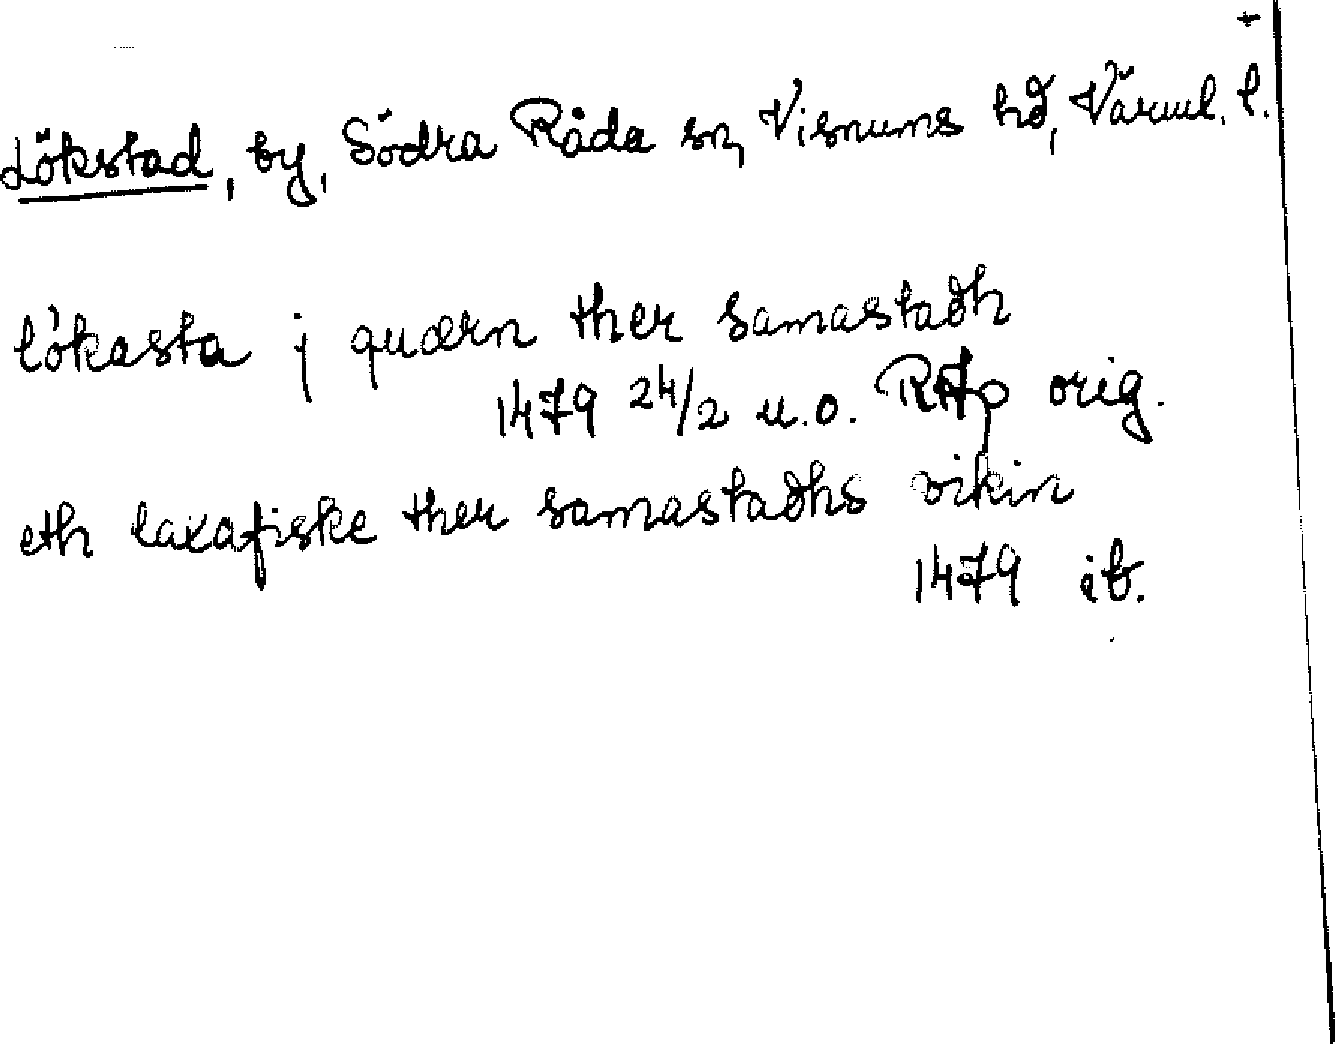 +
Lökstad, by, Södra Råda sn, Visnums hd, Värml. l.
lókasta j quærn ther samastadh
1479 24/2 u.o. RAp orig.
eth laxafiske ther samastadhs vikin
1479 ib.